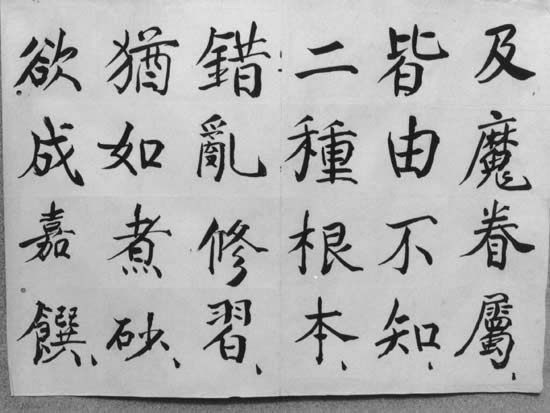 及魔眷屬、
皆由不知、
二種根本、
錯亂修習、
猶如煮砂、
欲成嘉饌、